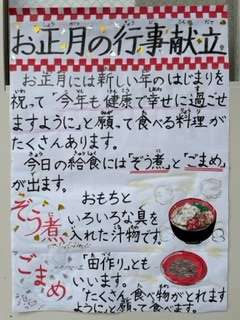 お正月の行事献立
お正月には新しい年のはじまりを
祝って「今年も健康で幸せに過ごせ
ますように」と願って食べる料理が
たくさんあります。
今日の給食には「ぞう煮」と「ごまめ」
が出ます。
ぞう煮
おもちと
いろいろな具を
入れた汁物です。
ごまめ
「田作り」とも
いいます。
「たくさん食べ物がとれます
ように」と願って食べます。